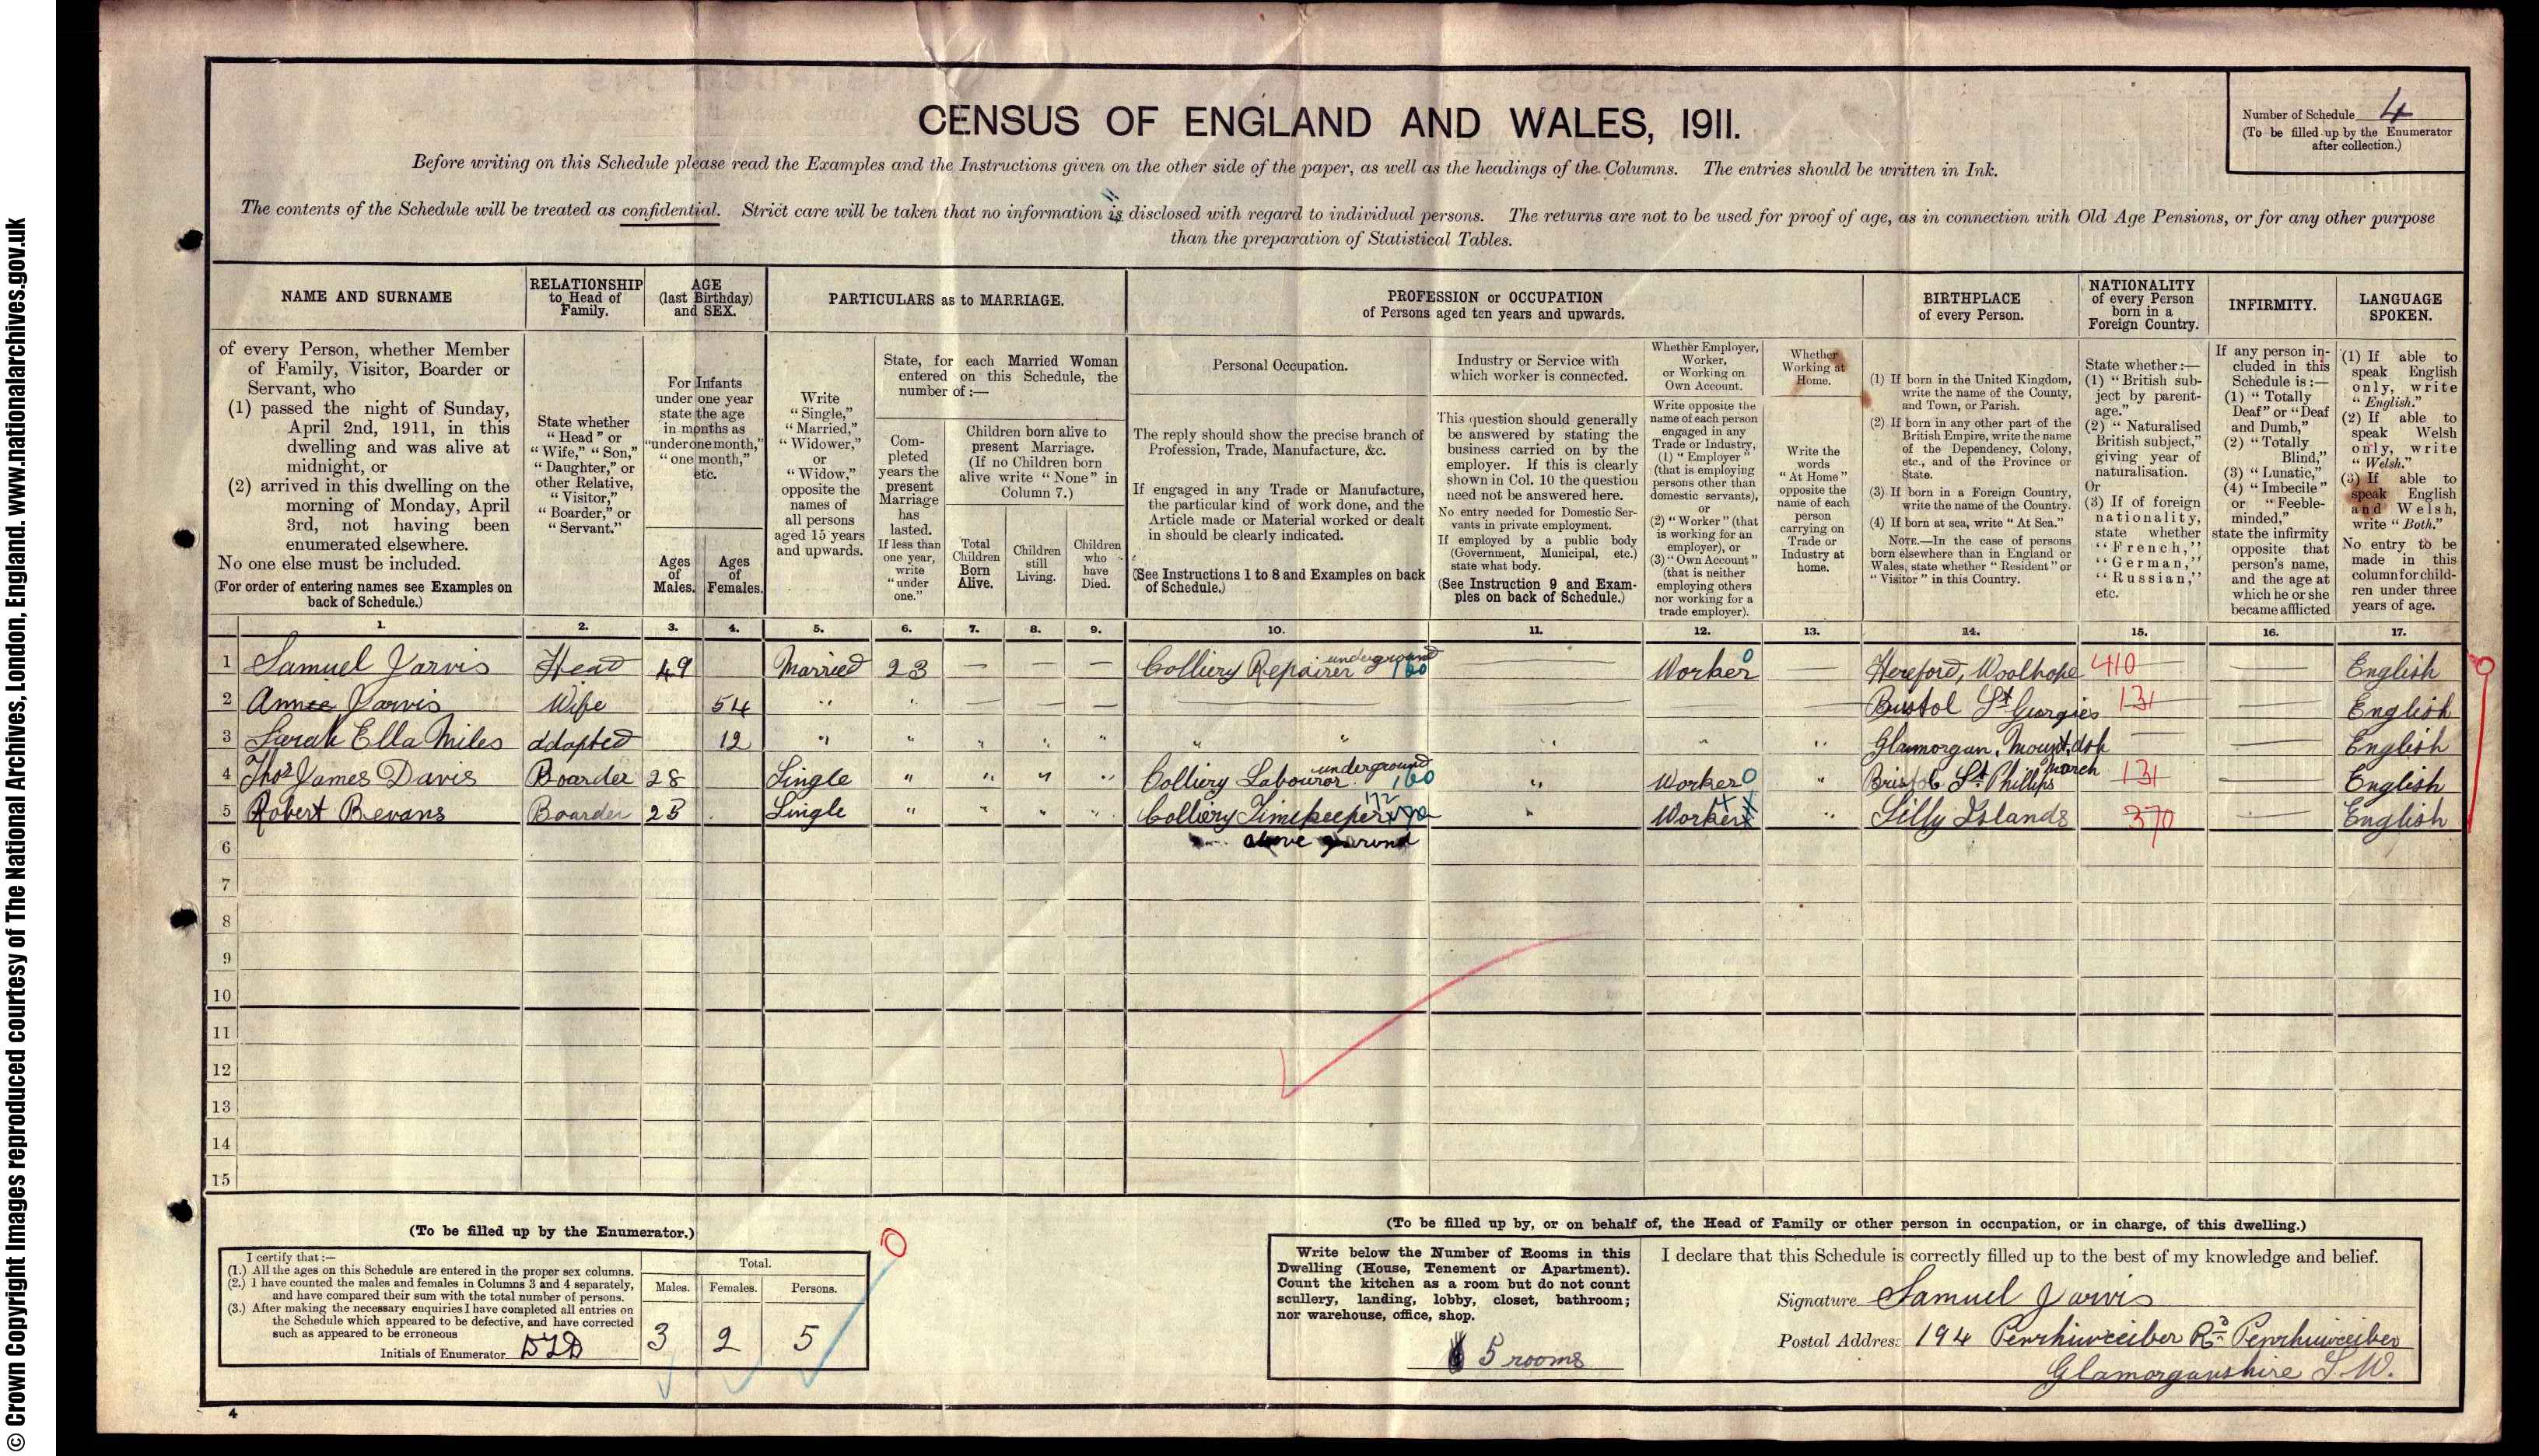 CENSUS OF ENGLAND AND WALES, 1911.
Number of Schedule 4
(To be filled up by the Enumerator
after collection.)
Before writing on this Schedule please read the Examples and the Instructions given on the other side of the paper, as well as the headings of the Columns. The entries should be written in Ink.
The contents of the Schedule will be treated as confidential. Strict care will be taken that no information is disclosed with regard to individual persons. The returns are not to be used for proof of age, as in connection with Old Age Pensions, or for any other purpose
than the preparation of Statistical Tables.
NAME AND SURNAME
of every Person, whether Member
of Family, Visitor, Boarder or
Servant, who
(1) passed the night of Sunday,
April 2nd, 1911, in this
dwelling and was alive at
midnight, or
(2) arrived in this dwelling on the
morning of Monday, April
3rd, not having been
enumerated elsewhere.
No one else must be included.
(For order of entering names see Examples on
back of Schedule.)
RELATIONSHIP
to Head of
Family.
State whether
"Head" or
"Wife," "Son,"
"Daughter," or
other Relative,
"Visitor,"
"Boarder," or
"Servant."
AGE
(last Birthday)
and SEX.
For Infants
under one year
state the age
in months as
"under one month,"
"one month,"
etc.
Ages
of
Males.
Ages
of
Females.
PARTICULARS as to MARRIAGE.
Write
"Single,"
"Married,"
"Widower,"
or
"Widow,"
opposite the
names of
all persons
aged 15 years
and upwards.
State, for each Married Woman
entered on this Schedule, the
number of :—
Com-
pleted
years the
present
Marriage
has
lasted.
If less than
one year,
write
"under
one."
Children born alive to
present Marriage.
(If no Children born
alive write "None" in
Column 7.)
Total
Children
Born
Alive.
Children
still
Living.
Children
who
have
Died.
PROFESSION or OCCUPATION
of Persons aged ten years and upwards.
Personal Occupation.
The reply should show the precise branch of
Profession, Trade, Manufacture, &c.
If engaged in any Trade or Manufacture,
the particular kind of work done, and the
Article made or Material worked or dealt
in should be clearly indicated.
(See Instructions 1 to 8 and Examples on back
of Schedule.)
Industry or Service with
which worker is connected.
This question should generally
be answered by stating the
business carried on by the
employer. If this is clearly
shown in Col. 10 the question
need not be answered here.
No entry needed for Domestic Ser-
vants in private employment.
If employed by a public body
(Government, Municipal, etc.)
state what body.
(See Instruction 9 and Exam-
ples on back of Schedule.)
Whether Employer,
Worker,
or Working on
Own Account.
Write opposite the
name of each person
engaged in any
Trade or Industry,
(1) "Employer"
(that is employing
persons other than
domestic servants),
or
(2) "Worker" (that
is working for an
employer), or
(3) "Own Account"
(that is neither
employing others
nor working for a
trade employer).
Whether
Working at
Home.
Write the
words
"At Home"
opposite the
name of each
person
carrying on
Trade or
Industry at
home.
BIRTHPLACE
of every Person.
(1) If born in the United Kingdom,
write the name of the County,
and Town, or Parish.
(2) If born in any other part of the
British Empire, write the name
of the Dependency, Colony,
etc., and of the Province or
State.
(3) If born in a Foreign Country,
write the name of the Country.
(4) If born at sea, write "At Sea."
NOTE.—In the case of persons
born elsewhere than in England or
Wales, state whether "Resident" or
"Visitor" in this Country.
NATIONALITY
of every Person
born in a
Foreign Country.
State whether :—
(1) "British sub-
ject by parent-
age."
(2) "Naturalised
British subject,"
giving year of
naturalisation.
Or
(3) If of foreign
nationality,
state whether
"French,"
"German,"
"Russian,"
etc.
INFIRMITY.
If any person in-
cluded in this
Schedule is :—
(1) "Totally
Deaf" or "Deaf
and Dumb,"
(2) "Totally
Blind,"
(3) "Lunatic,"
(4) "Imbecile"
or "Feeble-
minded,"
state the infirmity
opposite that
person's name,
and the age at
which he or she
became afflicted
LANGUAGE
SPOKEN.
(1) If able to
speak English
only, write
"English."
(2) If able to
speak Welsh
only, write
"Welsh."
(3) If able to
speak English
and Welsh,
write "Both."
No entry to be
made in this
column for child-
ren under three
years of age.
1. 2. 3. 4. 5. 6. 7. 8. 9. 10. 11. 12. 13. 14. 15. 16. 17.
1 Samuel Jarvis Head 49 Married 23 — — — Colliery Repairer underground 160 — Worker 0 — Hereford, Woolhope 410 — English
2 Annie Jarvis Wife 54 " " — — — Bristol St Georgies 131 — English
3 Sarah Ella Miles adopted 12 " " " " " " " " " " Glamorgan, Mount.Ash — — English
4 Thos James Davis Boarder 28 Single " " " " Colliery Labouror underground 160 " Worker 0 " Bristol St Phillips March 131 — English
5 Robert Bevans Boarder 23 Single " " " " Colliery Timekeeper " Worker " Silly Islands 370 — English
above ground
6
7
8
9
10
11
12
13
14
15
(To be filled up by the Enumerator.)
I certify that :—
(1.) All the ages on this Schedule are entered in the proper sex columns.
(2.) I have counted the males and females in Columns 3 and 4 separately,
and have compared their sum with the total number of persons.
(3.) After making the necessary enquiries I have completed all entries on
the Schedule which appeared to be defective, and have corrected
such as appeared to be erroneous
Initials of Enumerator
Total.
Males. Females. Persons.
3 2 5
0
(To be filled up by, or on behalf of, the Head of Family or other person in occupation, or in charge, of this dwelling.)
Write below the Number of Rooms in this
Dwelling (House, Tenement or Apartment).
Count the kitchen as a room but do not count
scullery, landing, lobby, closet, bathroom;
nor warehouse, office, shop.
5 rooms
I declare that this Schedule is correctly filled up to the best of my knowledge and belief.
Signature Samuel Jarvis
Postal Address 194 Penrhiwceiber Rd Penrhiwceiber
Glamorganshire S.W.
4
© Crown Copyright Images reproduced courtesy of The National Archives, London, England. www.nationalarchives.gov.uk